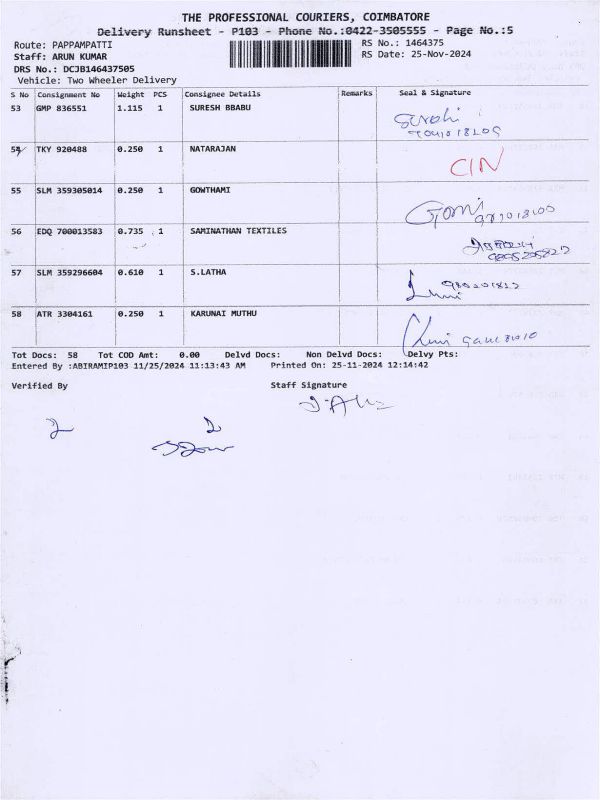 THE PROFESSIONAL COURIERS, COIMBATORE
Delivery Runsheet - P103 - Phone No.:0422-3505555 - Page No.:5
Route: PAPPAMPATTI RS No.: 1464375
Staff: ARUN KUMAR RS Date: 25-Nov-2024
DRS No.: DCJB146437505
Vehicle: Two Wheeler Delivery
S No Consignment No Weight PCS Consignee Details Remarks Seal & Signature
53 GMP 836551 1.115 1 SURESH BBABU
54 TKY 920488 0.250 1 NATARAJAN CIN
55 SLM 359305014 0.250 1 GOWTHAMI
56 EDQ 700013583 0.735 1 SAMINATHAN TEXTILES
57 SLM 359296604 0.610 1 S.LATHA
58 ATR 3304161 0.250 1 KARUNAI MUTHU
Tot Docs: 58 Tot COD Amt: 0.00 Delvd Docs: Non Delvd Docs: Delvy Pts:
Entered By :ABIRAMIP103 11/25/2024 11:13:43 AM Printed On: 25-11-2024 12:14:42
Verified By Staff Signature